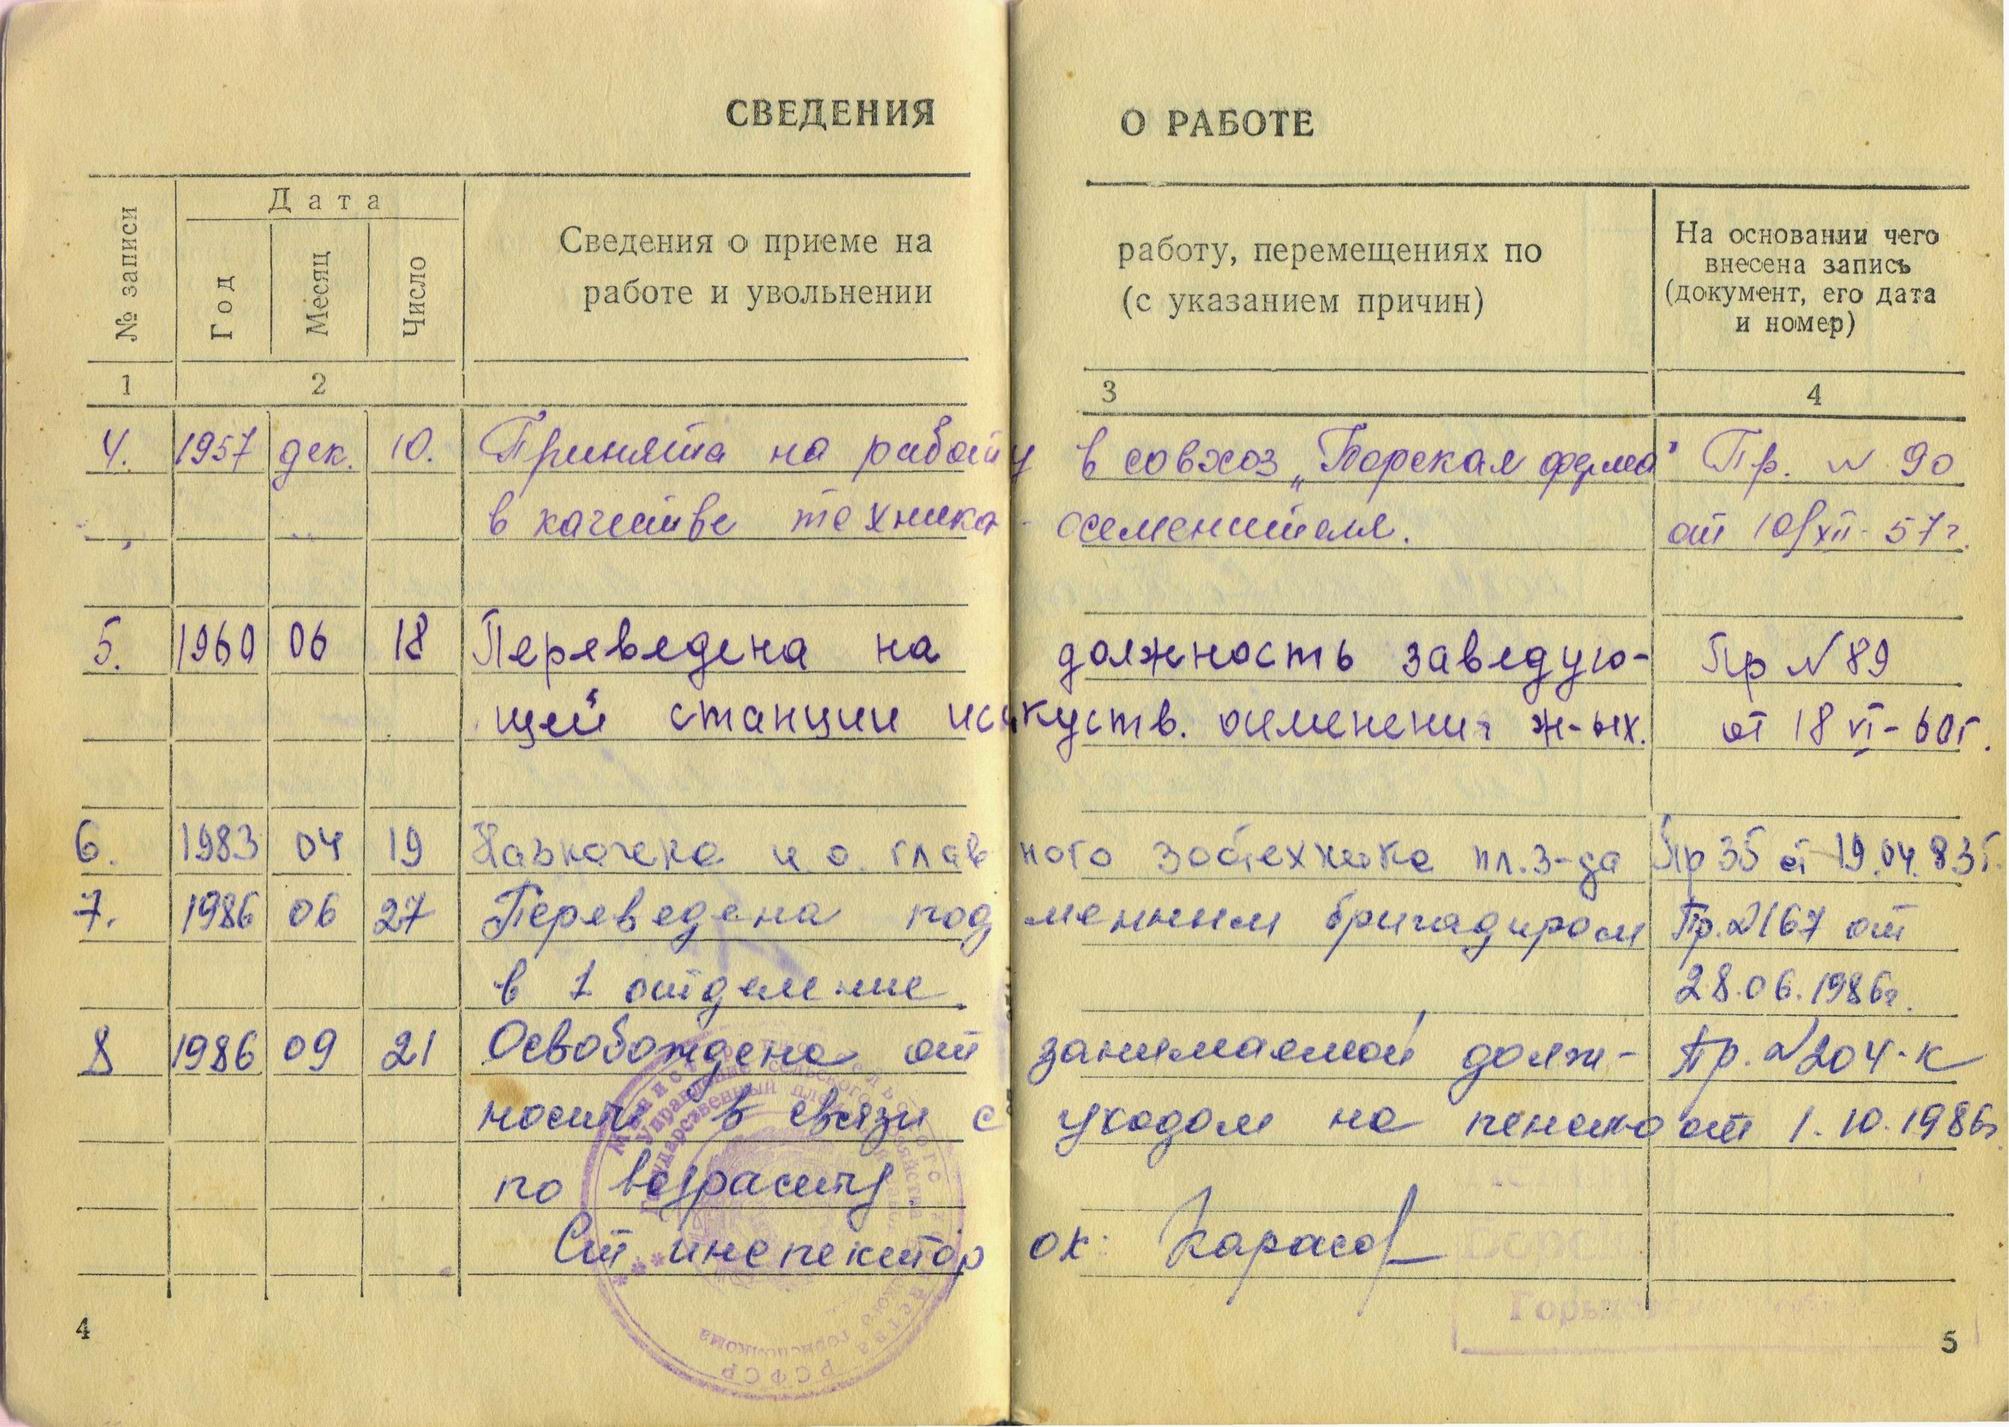 СВЕДЕНИЯ О РАБОТЕ
№ записи
Дата
Год
Месяц
Число
Сведения о приеме на работу, перемещениях по
работе и увольнении (с указанием причин)
На основании чего
внесена запись
(документ, его дата
и номер)
1 2 3 4
4. 1957 дек. 10. Принята на работу в совхоз „Борская ферма" Пр. N 90
в качестве техника - осеменителя. от 10/XII - 57г.
5. 1960 06 18 Переведена на должность заведую- Пр N 89
щей станции исскуств. осеменения ж-ых. от 18 VI - 60г.
6. 1983 04 19 Назначена и.о. главного зоотехника пл.з-да Пр 35 от 19.04.83г.
7. 1986 06 27 Переведена подменным бригадиром Пр.N167 от
в 1 отделение 28.06.1986г.
8 1986 09 21 Освобождена от занимаемой долж- Пр. N204-к
ности в связи с уходом на пенсию от 1.10.1986г
по возрасту
Ст инспектор ок:
Министерство сельского хозяйства РСФСР
Управление сельского
Государственный
горисполкома
Горьковской
4
5